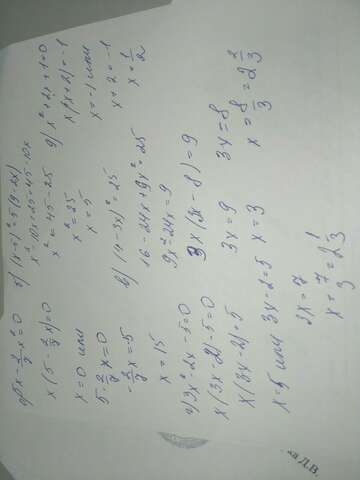 x - 2/7 x² = 0
x (5 - 2/7 x) = 0
x = 0 или
5 - 2/7 x = 0
- 2/7 x = 5
x = 15
г) 3x² - 2x - 5 = 0
x (3x - 2) - 5 = 0
x (3x - 2) = 5
x = 5 или 3x - 2 = 5
3x = 7
x = 7/3 = 2 1/3
б) (x-5)² = 5(9-2x)
x² - 10x + 25 = 45 - 10x
x² = 45 - 25
x² = 25
x = 5
в) (4-3x)² = 25
16 - 24x + 9x² = 25
9x² - 24x = 9
3x (3x - 8) = 9
3x = 9
x = 3
3x = 8
x = 8/3 = 2 2/3
x² + 2x + 1 = 0
x(x+2) = -1
x = -1 или
x + 2 = -1
Д.В.